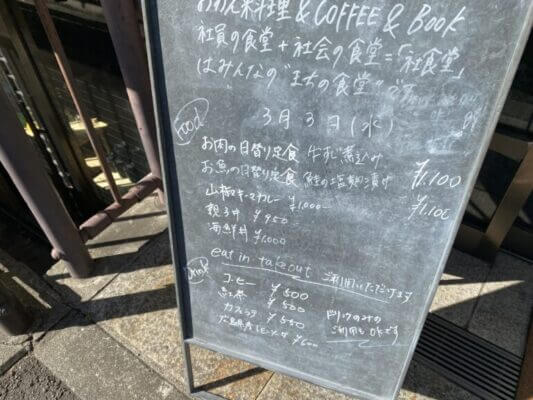 おかん料理&COFFEE&Book
社員の食堂+社会の食堂=「社食堂」
はみんなの"まちの食堂"です
3月3日(水)
Food
お肉の日替り定食 牛すじ煮込み ¥1,100
お魚の日替り定食 鮭の塩麹漬け ¥1,100
山椒キーマカレー ¥1,000
親子丼 ¥950
海鮮丼 ¥1,000
eat in takeout ご利用いただけます
Drink
コーヒー ¥500
紅茶 ¥500
カフェラテ ¥550
ドリンクのみの
ご利用もOKです
¥600